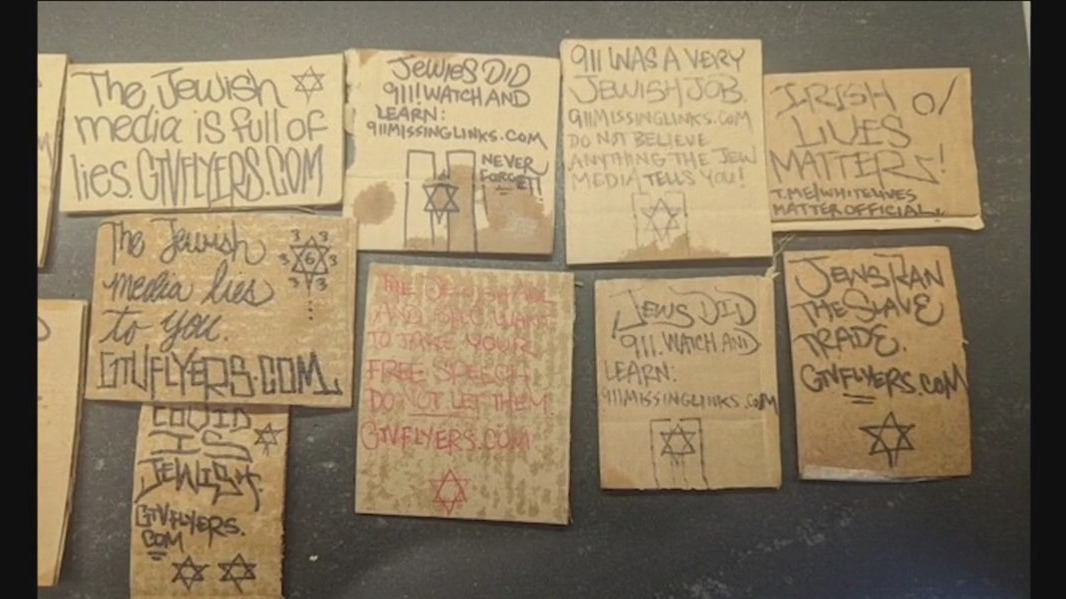 The Jewish
media is full of
lies. GTVFLYERS.COM
JEWIES DID
911! WATCH AND
LEARN:
911MISSINGLINKS.COM
NEVER
FORGET!
911 WAS A VERY
JEWISH JOB.
911MISSINGLINKS.COM
DO NOT BELIEVE
ANYTHING THE JEW
MEDIA TELLS YOU!
IRISH O/
LIVES
MATTERS!
T.ME/WHITELIVES
MATTEROFFICIAL.
The Jewish
media lies
to you.
GTVFLYERS.COM
3 3
3 6 3
3 3
THE
AND WANT
TO TAKE YOUR
FREE SPEECH
DO NOT LET THEM!
GTVFLYERS.COM
JEWS DID
911. WATCH AND
LEARN:
911MISSINGLINKS.COM
JEWS RAN
THE SLAVE
TRADE.
GTVFLYERS.COM
COVID
IS
JEWISH.
GTVFLYERS.
COM